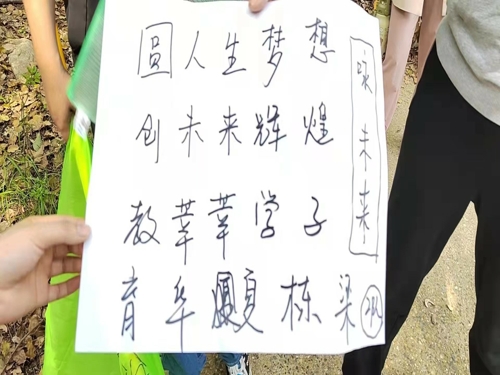 圆人生梦想
创未来辉煌
教莘莘学子
育华夏栋梁
咏未来